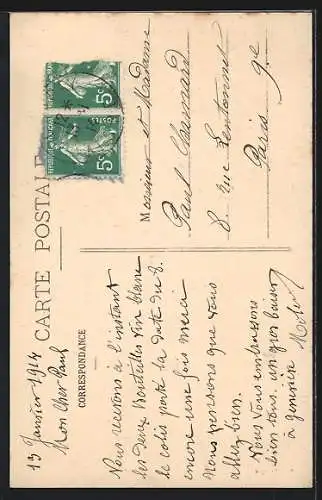 CARTE POSTALE
CORRESPONDANCE
13 Janvier 1914
Mon Cher Paul
Nous recevons à l'instant
les deux bouteilles vin blanc
le colis porte la date du 8.
encore une fois merci
Nous pensons que vous
allez bien.
Nous vous embrassons
bien tous. un gros baiser
à Geneviève
Monsieur et Madame
Paul
8, Rue
Paris 9e
REPUBLIQUE FRANÇAISE
POSTES
5c
5c